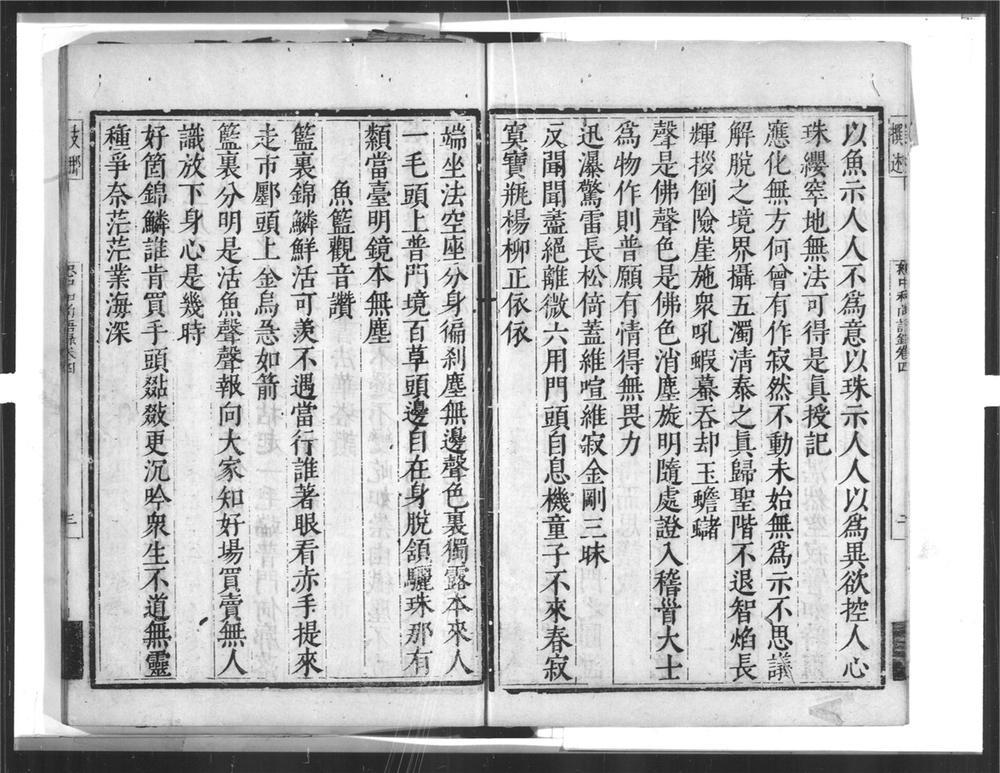 以魚示人人不為意以珠示人人以為異欲控人心
珠纓窣地無法可得是眞授記
應化無方何曾有作寂然不動未始無為示不思議
解脫之境界攝五濁清泰之眞歸聖階不退智焰長
輝拶倒險崖施衆吼蝦蟇吞却玉蟾蜍
聲是佛聲色是佛色消塵旋明隨處證入稽首大士
為物作則普願有情得無畏力
迅瀑驚雷長松倚蓋維喧維寂金剛三昧
反聞聞蓋絕離微六用門頭自息機童子不來春寂
寞寶瓶楊柳正依依
端坐法空座分身徧刹塵無邊聲色裏獨露本來人
一毛頭上普門境百草頭邊自在身脫頷驪珠那有
纇當臺明鏡本無塵
魚籃觀音讚
籃裏錦鱗鮮活可羨不遇當行誰著眼看赤手提來
走市鄽頭上金烏急如箭
籃裏分明是活魚聲聲報向大家知好場買賣無人
識放下身心是幾時
好箇錦鱗誰肯買手頭㸃㪘更沉吟衆生不道無靈
種爭奈茫茫業海深